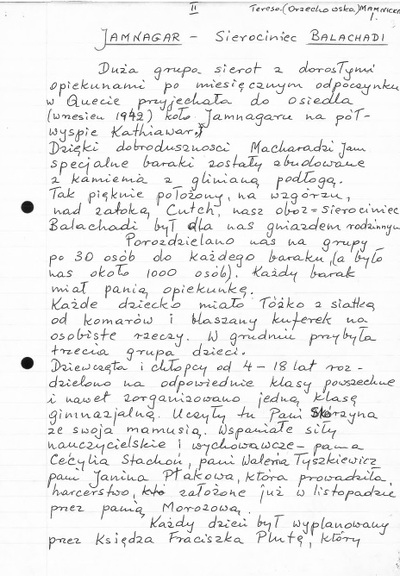 II
Teresa (Orzechowska) MAMNICKA
1.
JAMNAGAR - Sierociniec BALACHADI
Duża grupa sierot z dorosłymi
opiekunami po miesięcznym odpoczynku
w Quecie przyjechała do osiedla
(wrzesień 1942) koło Jamnagaru na pół-
wyspie Kathiawar.
Dzięki dobroduszności Macharadzi Jam
specjalne baraki zostały zbudowane
z kamienia z glinianą podłogą.
Tak pięknie położony, na wzgórzu,
nad zatoką Cutch, nasz obóz = Sierociniec
Balachadi był dla nas gniazdem rodzinnym
Porozdzielano nas na grupy
po 30 osób do każdego baraku (a było
nas około 1000 osób). Każdy barak
miał panią opiekunkę.
Każde dziecko miało łóżko z siatką
od komarów i blaszany kuferek na
osobiste rzeczy. W grudniu przybyła
trzecia grupa dzieci.
Dziewczęta i chłopcy od 4-18 lat roz-
dzielono na odpowiednie klasy powszechne
i nawet zorganizowano jedną klasę
gimnazjalną. Uczyły tu Pani Skórzyna
ze swoja mamusią. Wspaniałe siły
nauczycielskie i wychowawcze - pama
Cecylia Stachoń, pani Waleria Tyszkiewicz
pani Janina Ptakowa, która prowadziła
harcerstwo, założone już w listopadzie
przez panią Morozową.
Każdy dzień był wyplanowany
przez Księdza Fraciszka Plutę, który